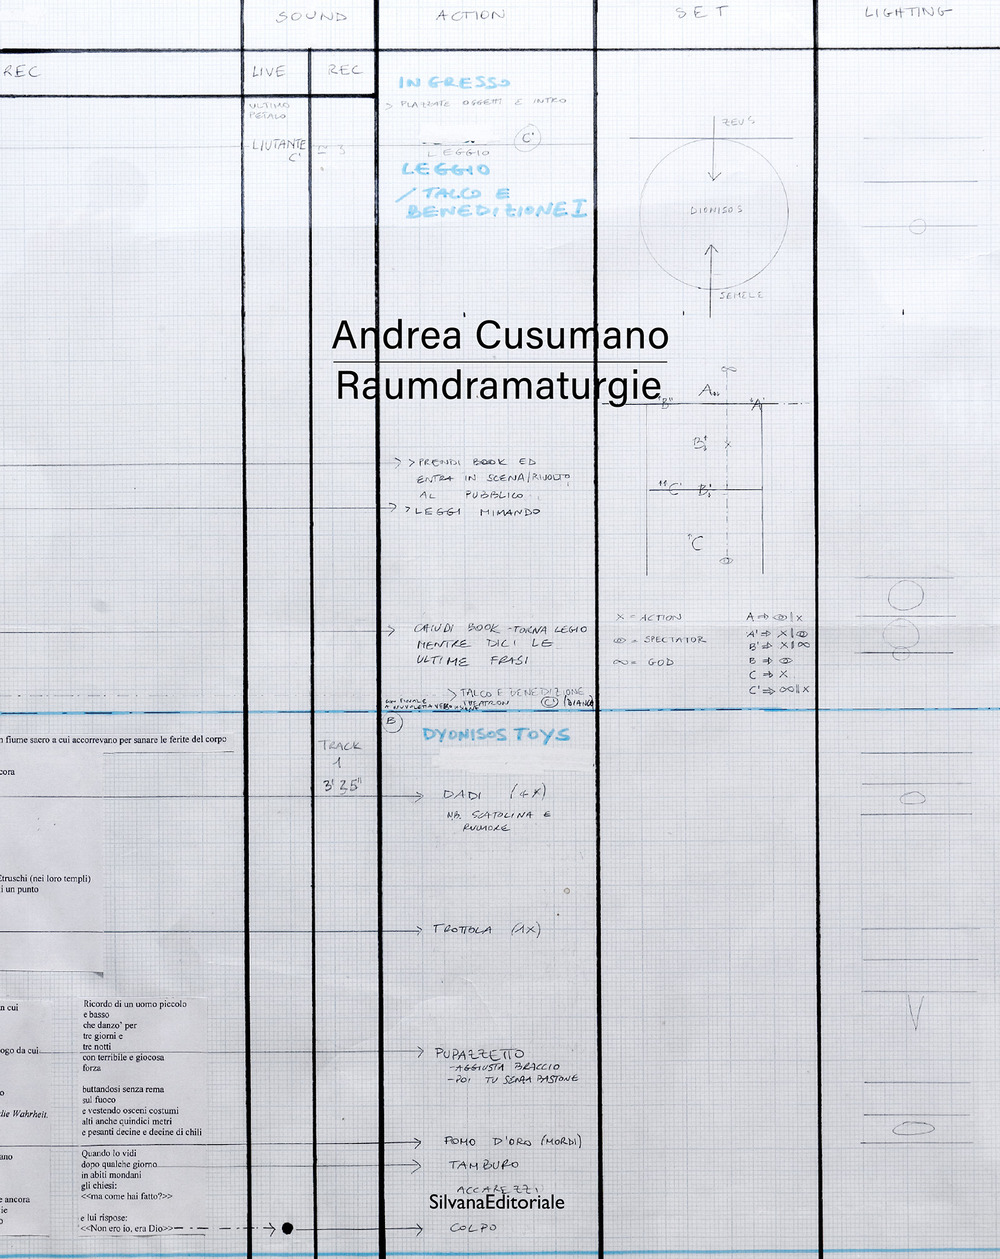 SOUND
ACTION
SET
LIGHTING
REC
LIVE
REC
INGRESSO
ULTIMO
PETALO
> PIAZZATE OGGETTI E INTRO
LIUTANTE
C'
C'
LEGGIO
LEGGIO
/ TALCO E
BENEDIZIONE I
ZEUS
DIONISOS
SEMELE
Andrea Cusumano
Raumdramaturgie
A
"B"
"A'
B'
"C'
B
"C
> PRENDI BOOK ED
ENTRA IN SCENA/RIVOLTO
AL PUBBLICO
> LEGGI MIMANDO
CHIUDI BOOK - TORNA LEGIO
MENTRE DICI LE
ULTIME FRASI
X = ACTION
= SPECTATOR
∞ = GOD
A ⇒ | X
A' ⇒ X |
B' ⇒ X || ∞
B ⇒
C ⇒ X
C' ⇒ ∞ || X
> TALCO E BENEDIZIONE
THEATRON C' /BIANCA
B
DYONISOS TOYS
n fiume sacro a cui accorrevano per sanare le ferite del corpo
cora
TRACK
1
3' 25"
DADI (4X)
NB. SCATOLINA E
RUMORE
Etruschi (nei loro templi)
i un punto
TROTTOLA (1X)
n cui
ogo da cui
o
die Wahrheit.
ano
e ancora
ie
o
Ricordo di un uomo piccolo
e basso
che danzo' per
tre giorni e
tre notti
con terribile e giocosa
forza
buttandosi senza rema
sul fuoco
e vestendo osceni costumi
alti anche quindici metri
e pesanti decine e decine di chili
Quando lo vidi
dopo qualche giorno
in abiti mondani
gli chiesi:
<<ma come hai fatto?>>
e lui rispose:
<<Non ero io, era Dio>>
PUPAZZETTO
- AGGIUSTA BRACCIO
- POI TU SENZA BASTONE
POMO D'ORO (MORDI)
TAMBURO
ACCAREZZI
SilvanaEditoriale
COLPO